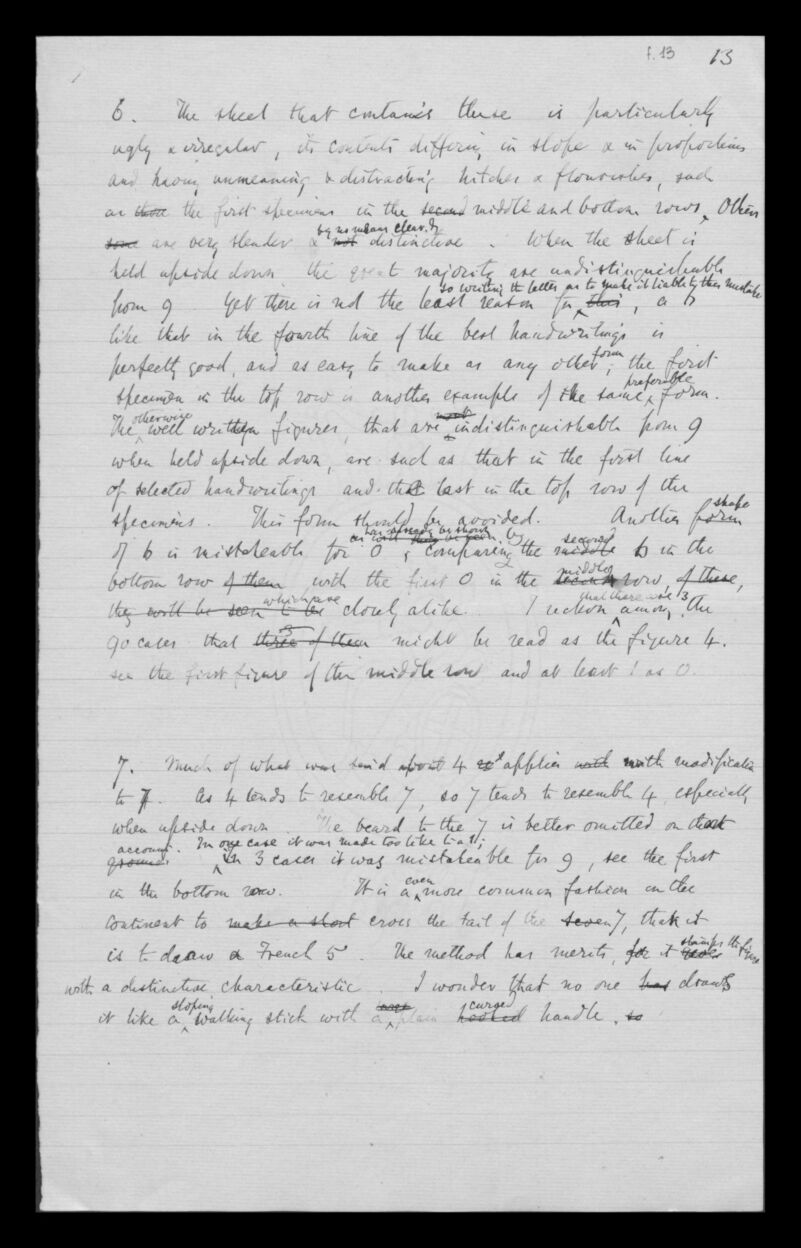 f.13 13
6. The sheet that contains these is particularly
ugly & irregular, its contents differing in slope & in proportions
and having unmeaning & distracting hitches & flourishes, such
as those the first specimens in the second middle and bottom rows. Others
some are very slender & not distinctive. When the sheet is
by no means clearly
held upside down the great majority are undistinguishable
from 9. Yet there is not the least reason for this, a 6
so writing the letter as to make it liable to this mistake
like that in the fourth line of the best handwritings is
perfectly good, and as easy to make as any other form; the first
specimen in the top row is another example of the same preferable form.
The otherwise well written figures, that are most indistinguishable from 9
when held upside down, are such as that in the first line
of selected handwritings and that last in the top row of the
specimens. This form should be avoided. Another form shape
of 6 is mistakeable for 0, comparing the middle second 6 in the
bottom row of them with the first 0 in the second middle row, of these,
they will be seen to be which are closely alike. I reckon among the
that there are 3
90 cases that three of them might be read as the figure 4.
see the first figure of the middle row and at least 1 as 0.
7. Much of what was said about 4 applies with with modification
to 7. As 4 tends to resemble 7, so 7 tends to resemble 4, especially
when upside down. The beard to the 7 is better omitted on that
account. In one case it was made too like to a 1;
grounds In 3 cases it was mistakeable for 9, see the first
in the bottom row. It is a even more common fashion on the
Continent to make a short cross the tail of the seven 7, that it
is to draw a French 5. The method has merits, for it stamps the figure
with a distinctive characteristic. I wonder that no one has draws
it like a sloping walking stick with a large plain hooked curved handle. so